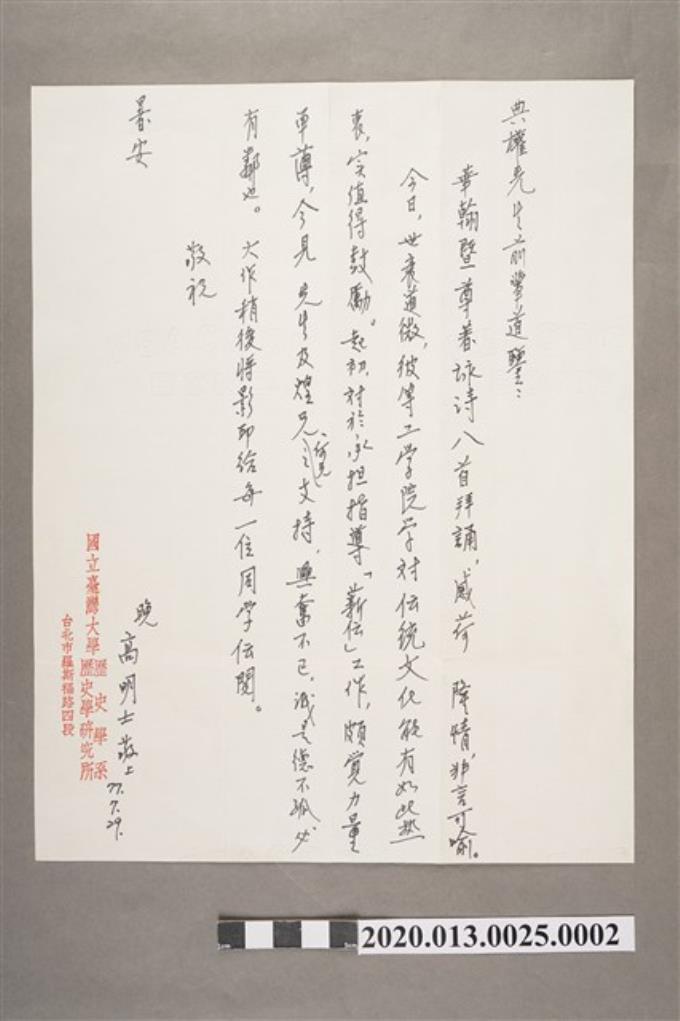 典權先生前輩道鑒：
華翰暨尊著詠詩八首拜誦，感荷　隆情，非言可喻。
今日，世衰道微，彼等工学院学对伝统文化能有如此热
衷，实值得鼓勵。起初，对於承担指導「薪伝」工作，頗覚力量
单薄，今見　先生及煌兄之支持，興奮不已，诚是德不孤必
有鄰也。　大作稍後将影印给每一位同学伝閱。
敬祝
暑安
晚　高明士敬上
77.7.29.
國立臺灣大學歷史學系
歷史學研究所
台北市羅斯福路四段
2020.013.0025.0002